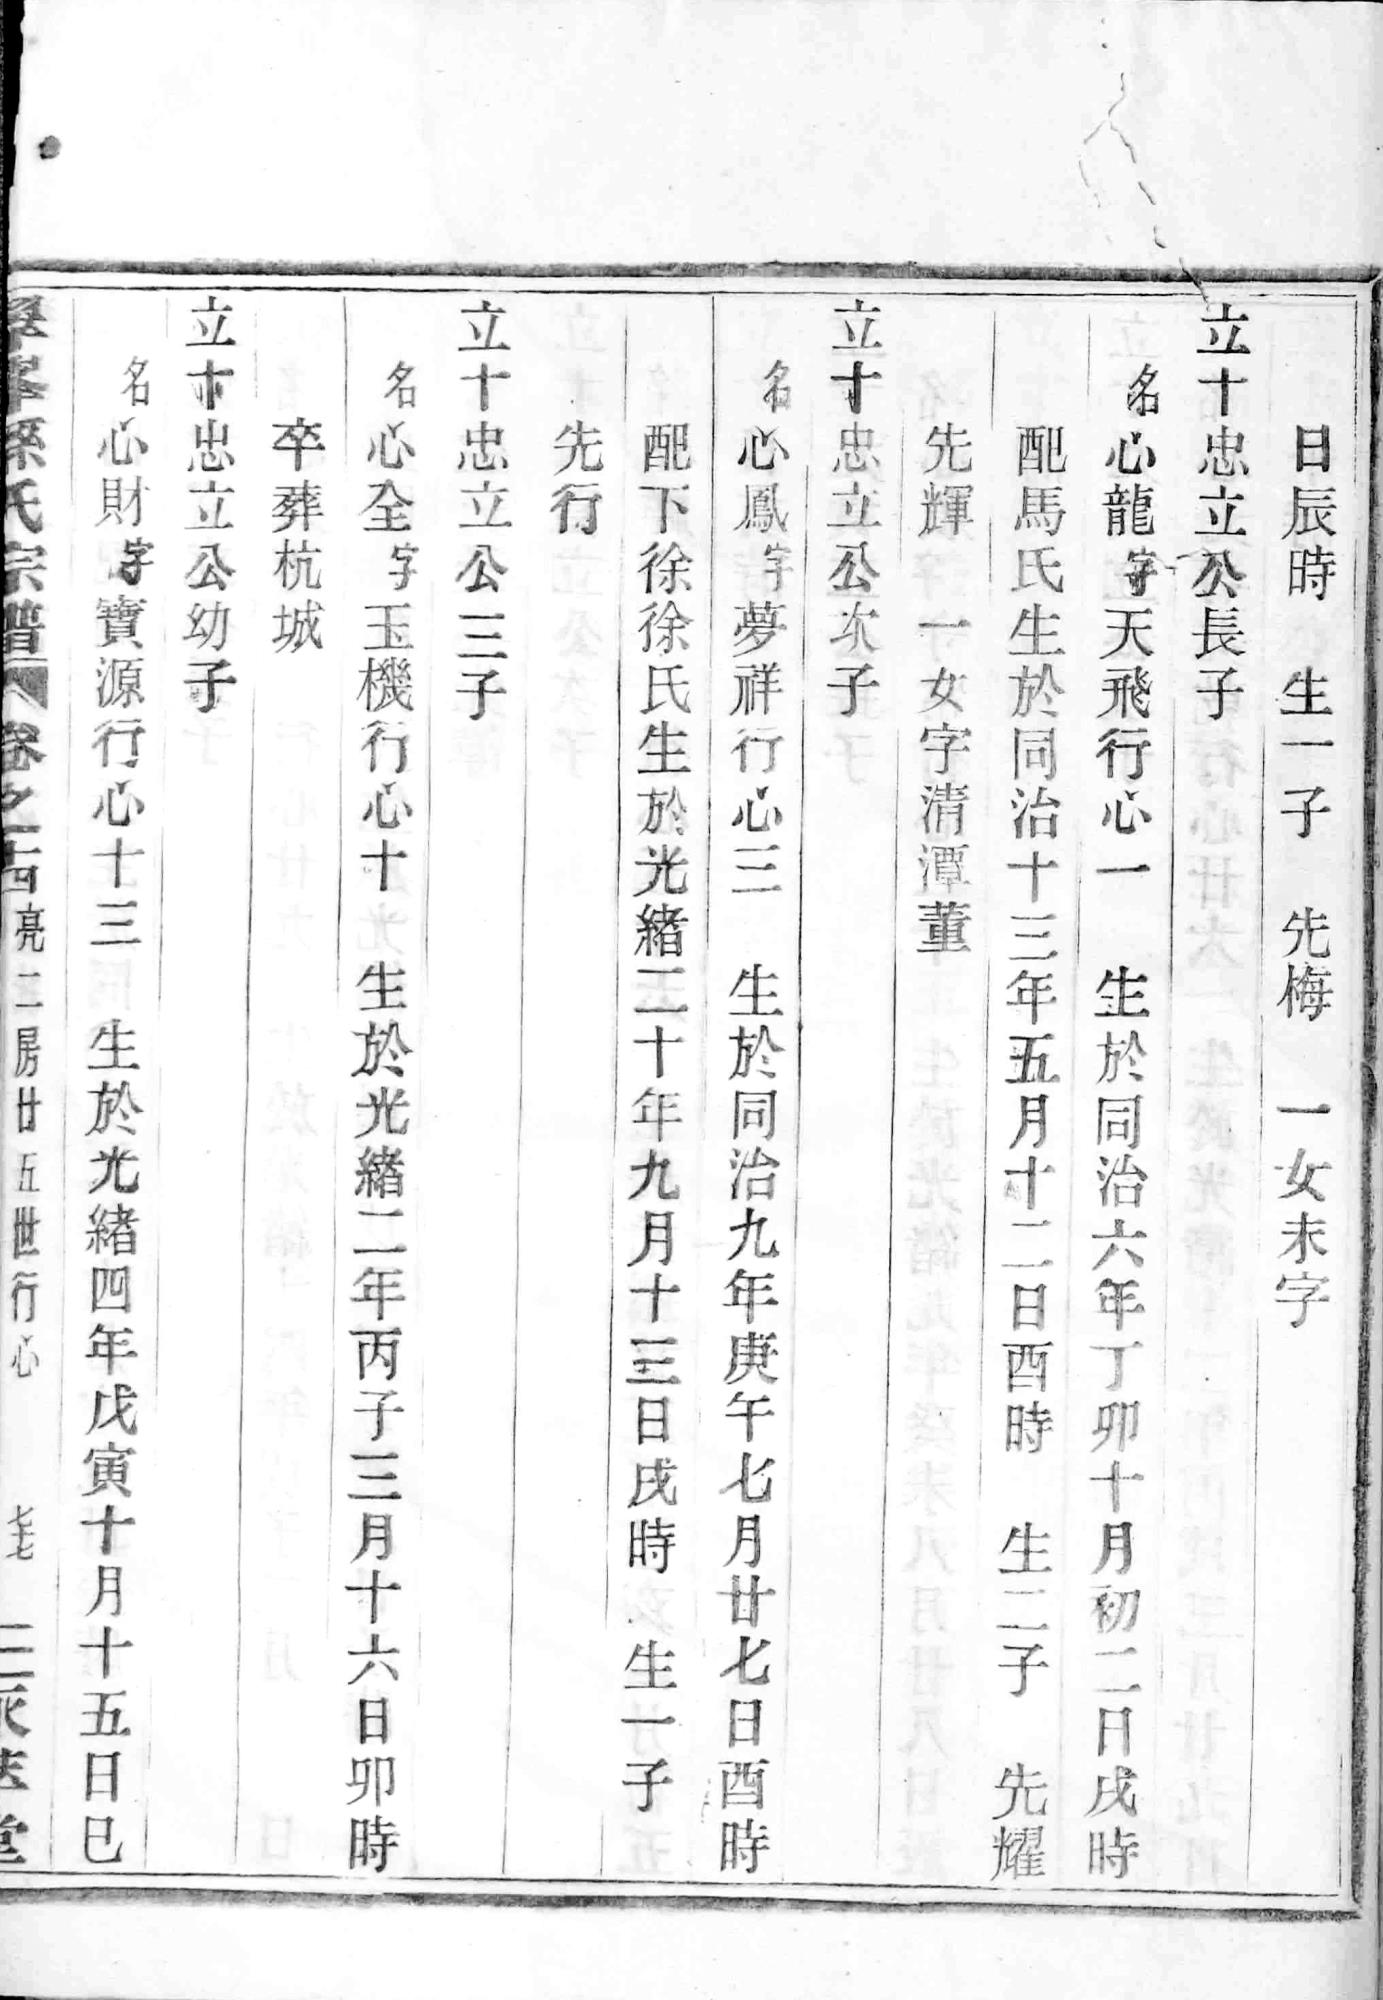 日辰時　生一子　先梅　一女未字
立十忠立公長子
名心龍字天飛行心一　生於同治六年丁卯十月初二日戌時
配馬氏生於同治十三年五月十二日酉時　生二子　先耀
先輝　一女字清潭董
立十忠立公次子
名心鳳字夢祥行心三　生於同治九年庚午七月廿七日酉時
配下徐徐氏生於光緒二十年九月十三日戌時　生一子
先行
立十忠立公三子
名心全字玉機行心十　生於光緒二年丙子三月十六日卯時
卒葬杭城
立十忠立公幼子
名心財字寶源行心十三　生於光緒四年戊寅十月十五日巳
孫氏宗譜　卷之十四　亮二房廿五世行心　七七　堂